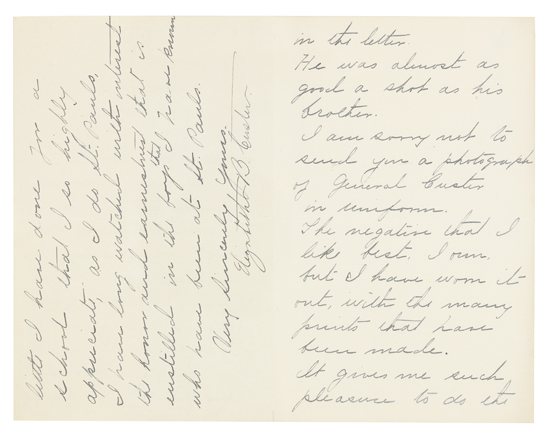 in the letter.
He was almost as
good a shot as his
brother.
I am sorry not to
send you a photograph
of General Custer
in uniform.
The negative that I
like best, I own.
but I have worn it
out, with the many
prints that have
been made.
It gives me such
pleasure to do the
little I have done for a
school that I so highly
appreciate, as I do St. Pauls.
I have long watched with interest
the honor and earnestness that is
instilled in the boys that I have known
who have been at St. Pauls.
Very sincerely yours
Elizabeth B Custer